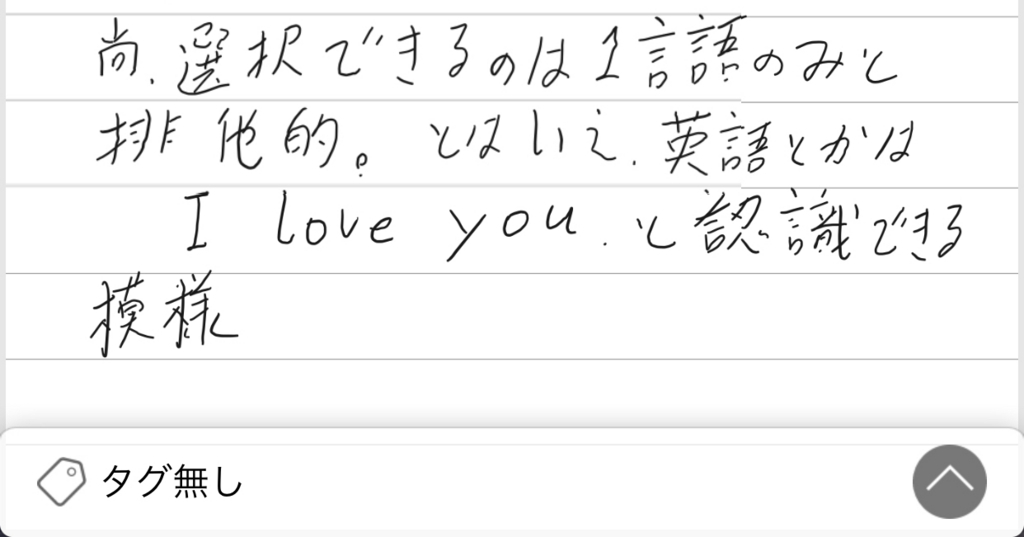 尚、選択できるのは1言語のみと
排他的。とはいえ、英語とかは
I love you. と認識できる
模様
タグ無し